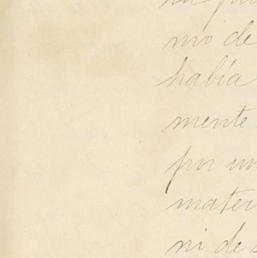 mo de
había
mente
por un
mater
ni de s